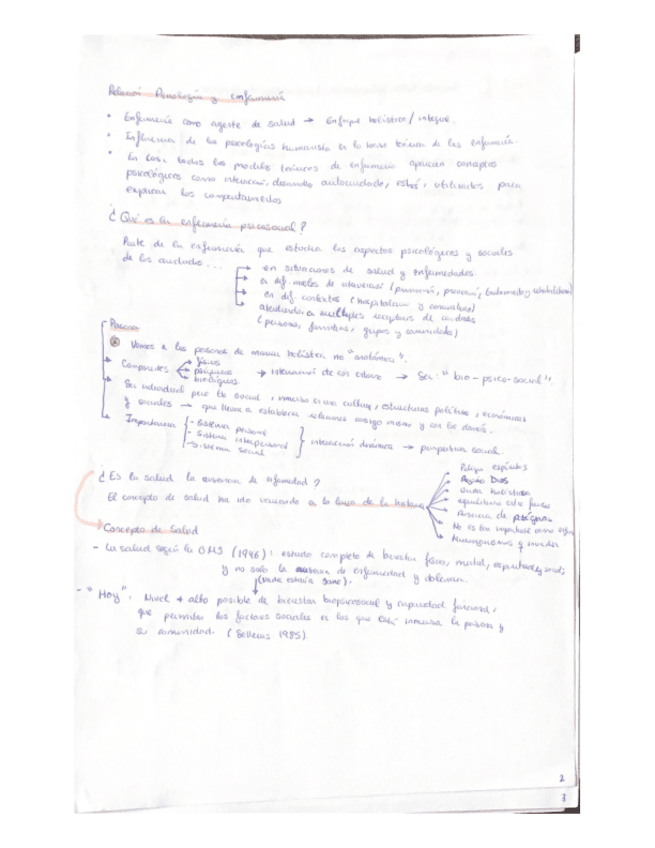 Relación Psicología y enfermería
• Enfermería como agente de salud → Enfoque holístico/integral.
• Influencia de las psicologías humanista en la base teórica de las enfermería.
• En casi todos los modelos teóricos de enfermería aparecen conceptos
psicológicos como interacción, desarrollo, autocuidado, estrés, utilizados para
explicar los comportamientos
¿Qué es la enfermería psicosocial?
Parte de la enfermería que estudia los aspectos psicológicos y sociales
de los cuidados...
en situaciones de salud y enfermedades.
en dif. niveles de atención (primaria, prevención,
en dif. contextos (hospitalario y comunitario)
atendiendo a múltiples receptores de cuidados
(persona, familias, grupos y comunidades)
Persona
Vemos a las personas de manera holística no "anatómica".
Componentes
físicos
psíquicos
biológicos
→ interacción de con entorno → Ser: "bio-psico-social".
Ser individual pero tb social, inmerso en una cultura, estructuras políticas, económicas
y sociales → que lleva a establecer relaciones consigo mismo y con los demás.
Importancia
- Sistema personal
- Sistema interpersonal
- Sistema social
interacción dinámica → perspectiva social.
¿Es la salud la ausencia de enfermedad?
El concepto de salud ha ido variando a lo largo de la historia
espíritus
Dios
holística
equilibrio entre fuerzas
Ausencia de patógenos
No es tan importante como
Microorganismos
Concepto de Salud
- La salud según la OMS (1946): estado completo de bienestar físico, mental, espiritual y social;
y no solo la ausencia de enfermedad y dolencia.
(nadie estaría sano).
- "Hoy": Nivel + alto posible de bienestar biopsicosocial y capacidad funcional,
que permiten los factores sociales en los que está inmersa la persona y
su comunidad. (Salleras 1985)
2
3